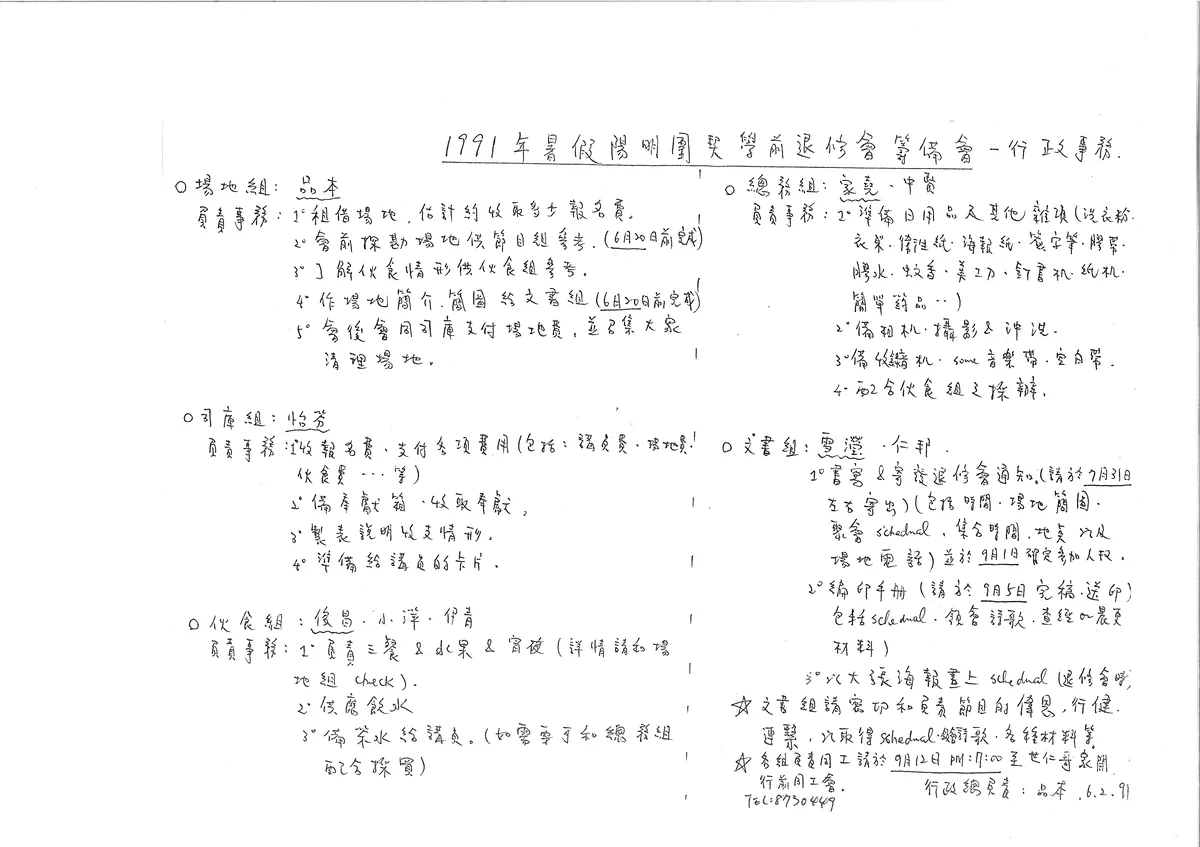 1991年暑假陽明團契學前退修會籌備會-行政事務.
○場地組: 品本
負責事務: 1° 租借場地,估計約收取多少報名費.
2° 會前探勘場地供節目組參考.(6月20日前完成)
3° 了解伙食情形供伙食組參考.
4° 作場地簡介.簡圖給文書組(6月20日前完成)
5° 會後會同司庫支付場地費,並召集大家
清理場地.
○司庫組: 怡芬
負責事務: 1°收報名費、支付各項費用(包括:講員費·場地費·
伙食費…等)
2° 備奉獻箱·收取奉獻,
3° 製表說明收支情形.
4° 準備給講員的卡片.
○伙食組: 俊昌·小萍·伊青
負責事務: 1° 負責三餐&水果&宵夜(詳情請和場
地組 check).
2° 供應飲水
3° 備茶水給講員。(如需要可和總務組
配合採買)
○總務組: 家堯·中賢
負責事務: 1° 準備日用品及其他雜項(洗衣粉.
衣架·衛生紙·海報紙·簽字筆·膠帶·
膠水·蚊香·美工刀·釘書机·紙机·
簡單藥品‥)
2° 備相机·攝影&沖洗.
3° 備收錄机·some 音樂帶·空白帶.
4° 配合伙食組之採辦.
○文書組: 雪瀅·仁邦.
1° 書寫&寄發退修會通知.(請於7月31日
左右寄出)(包括時間·場地簡圖·
聚會 schedual、集合時間.地點以及
場地電話)並於9月1日確定參加人數.
2° 編印手冊(請於9月5日完稿·送印)
包括schedual·領會詩歌·查經or晨更
材料)
3° 以大張海報畫上 schedual(退修會時)
☆文書組請密切和負責節目的偉恩,行健.
連繫,以取得schedual·詩歌·各種材料等
☆各組負責同工請於9月12日 PM:7:00至世仁哥家開
行前同工會.
TEL:8730449
行政總負責: 品本 .6.2.91